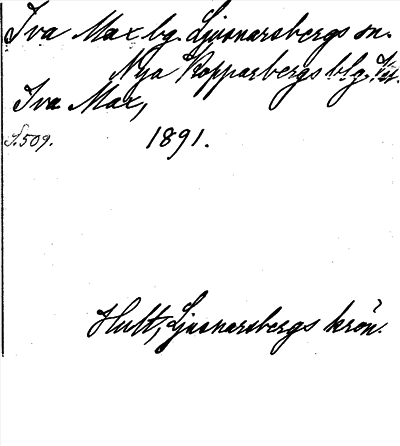 Iva Max bg. Ljusnarsbergs sn.
Nya Kopparbergs blg.
Iva Max,
S.509. 1891.
Hult, Ljusnarsbergs krön.